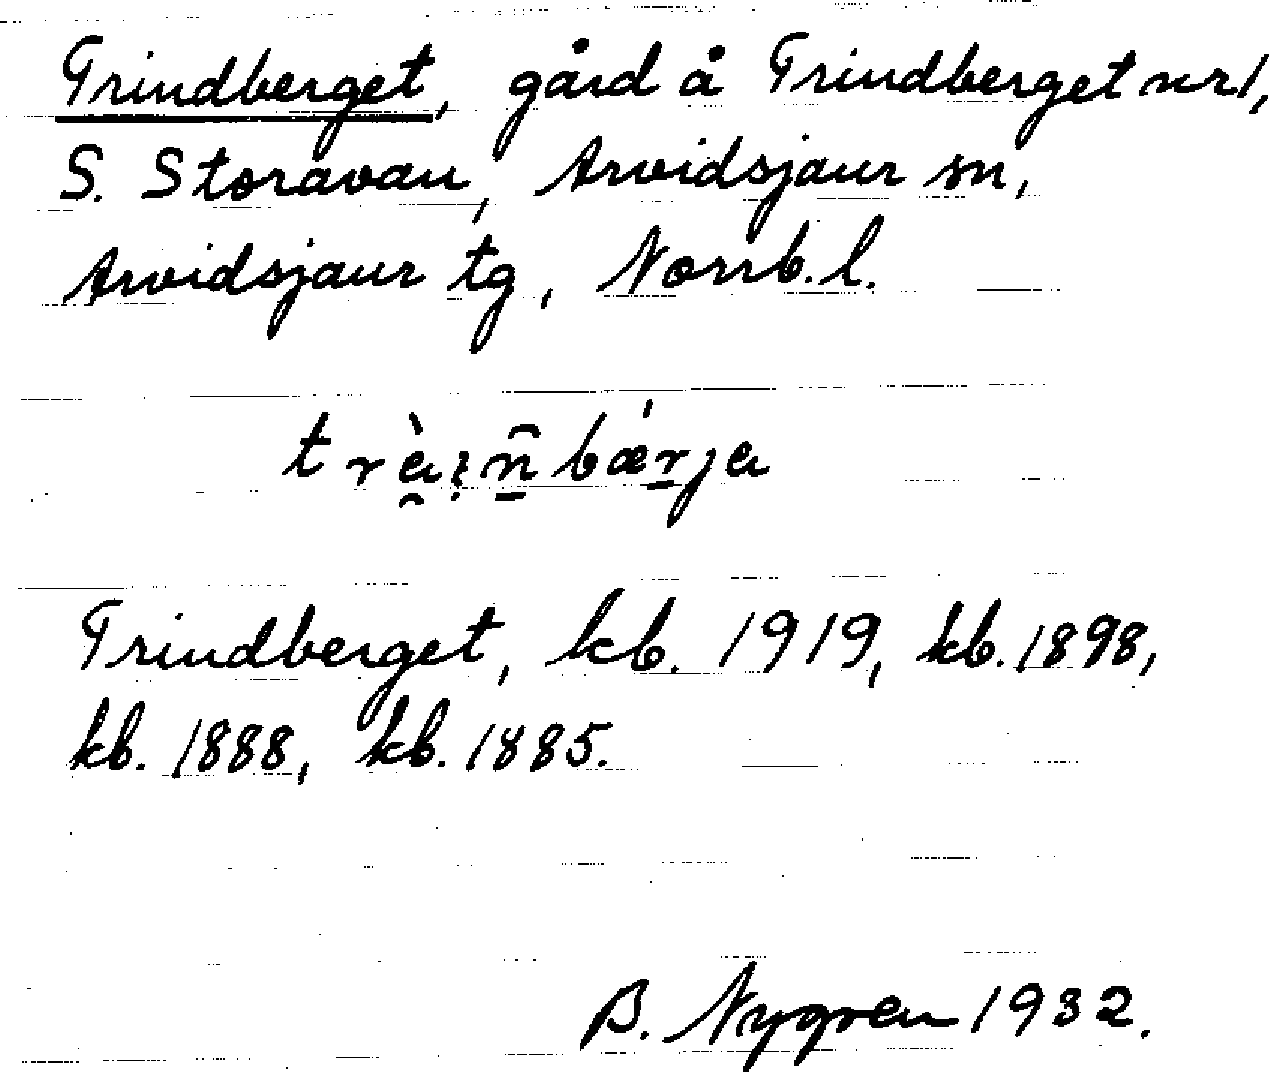 Trindberget, gård å Trindberget nr 1,
S. Storavan, Arvidsjaur sn,
Arvidsjaur tg, Norrb. l.
Trindberget, kb. 1919, kb. 1898,
kb. 1888, kb. 1885.
B. Nygren 1932.